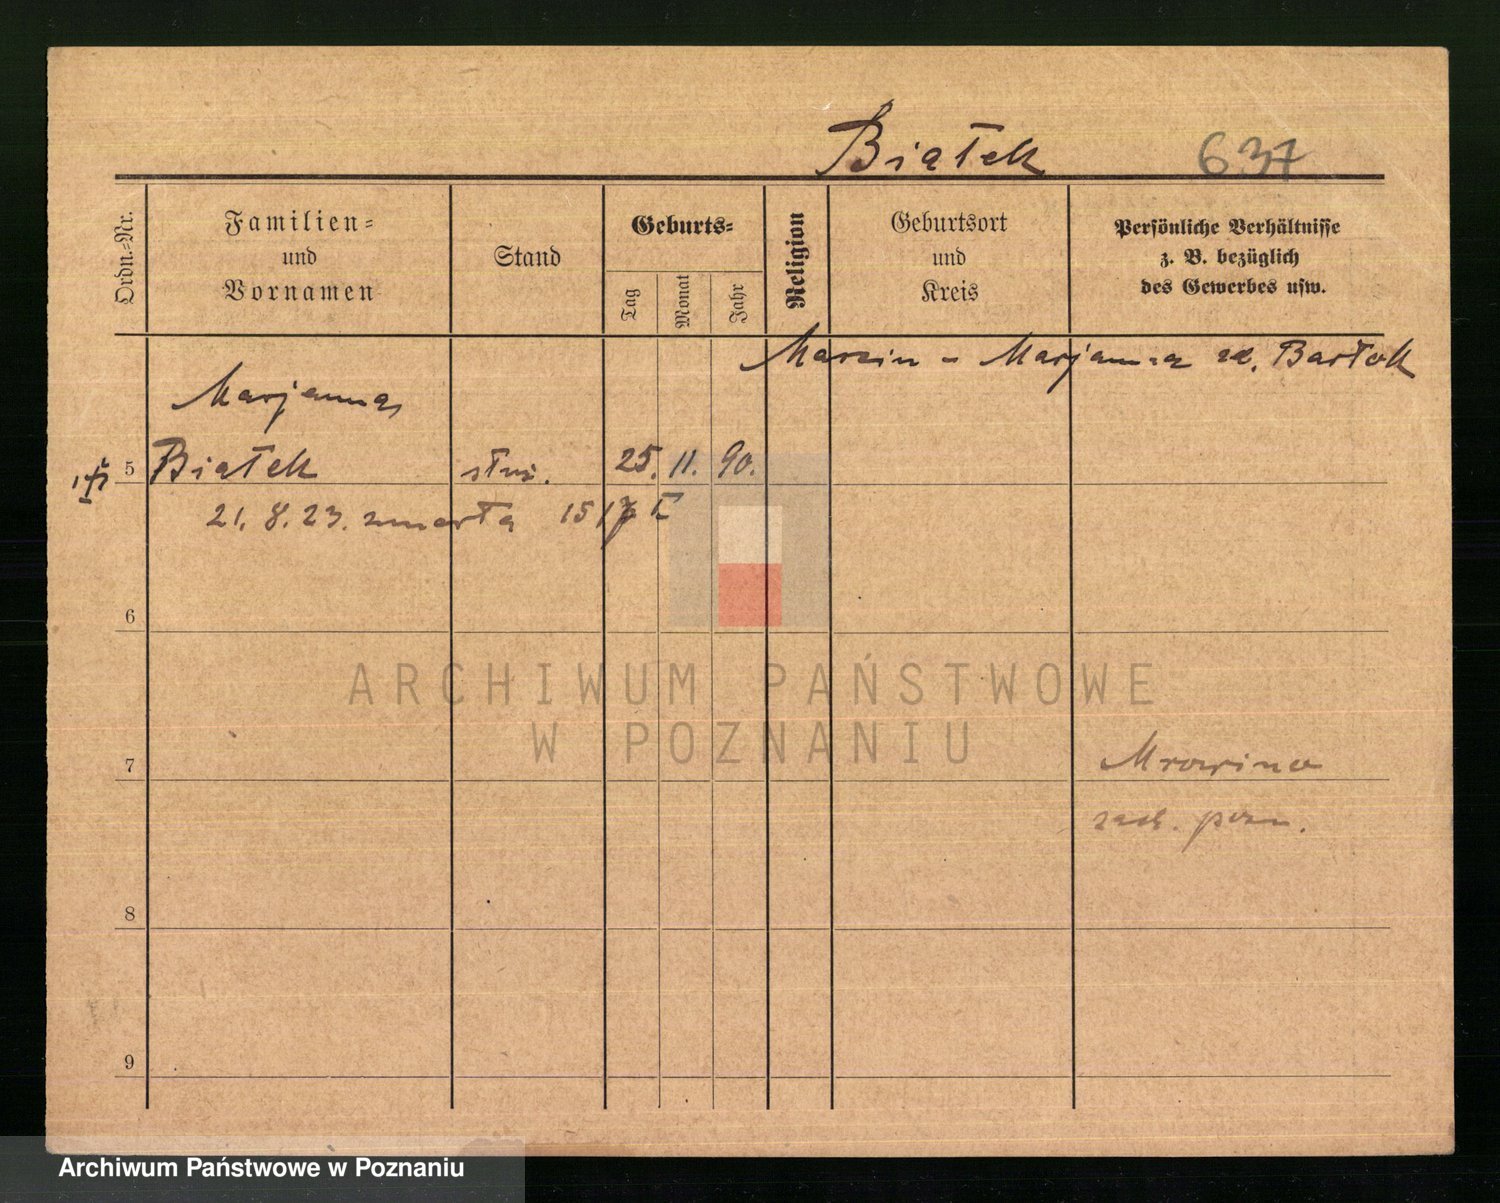 Białek 637
Ordn.-Nr.
Familien-
und
Vornamen
Stand
Geburts-
Tag
Monat
Jahr
Religion
Geburtsort
und
Kreis
Persönliche Verhältnisse
z. B. bezüglich
des Gewerbes usw.
Marcin - Marjanna zd. Bartok
Marjanna
5 Białek służ. 25. 11. 90.
21. 8. 23. zmarła
6
ARCHIWUM PAŃSTWOWE
W POZNANIU
7 Mrowino
zach. pozn.
8
9
Archiwum Państwowe w Poznaniu